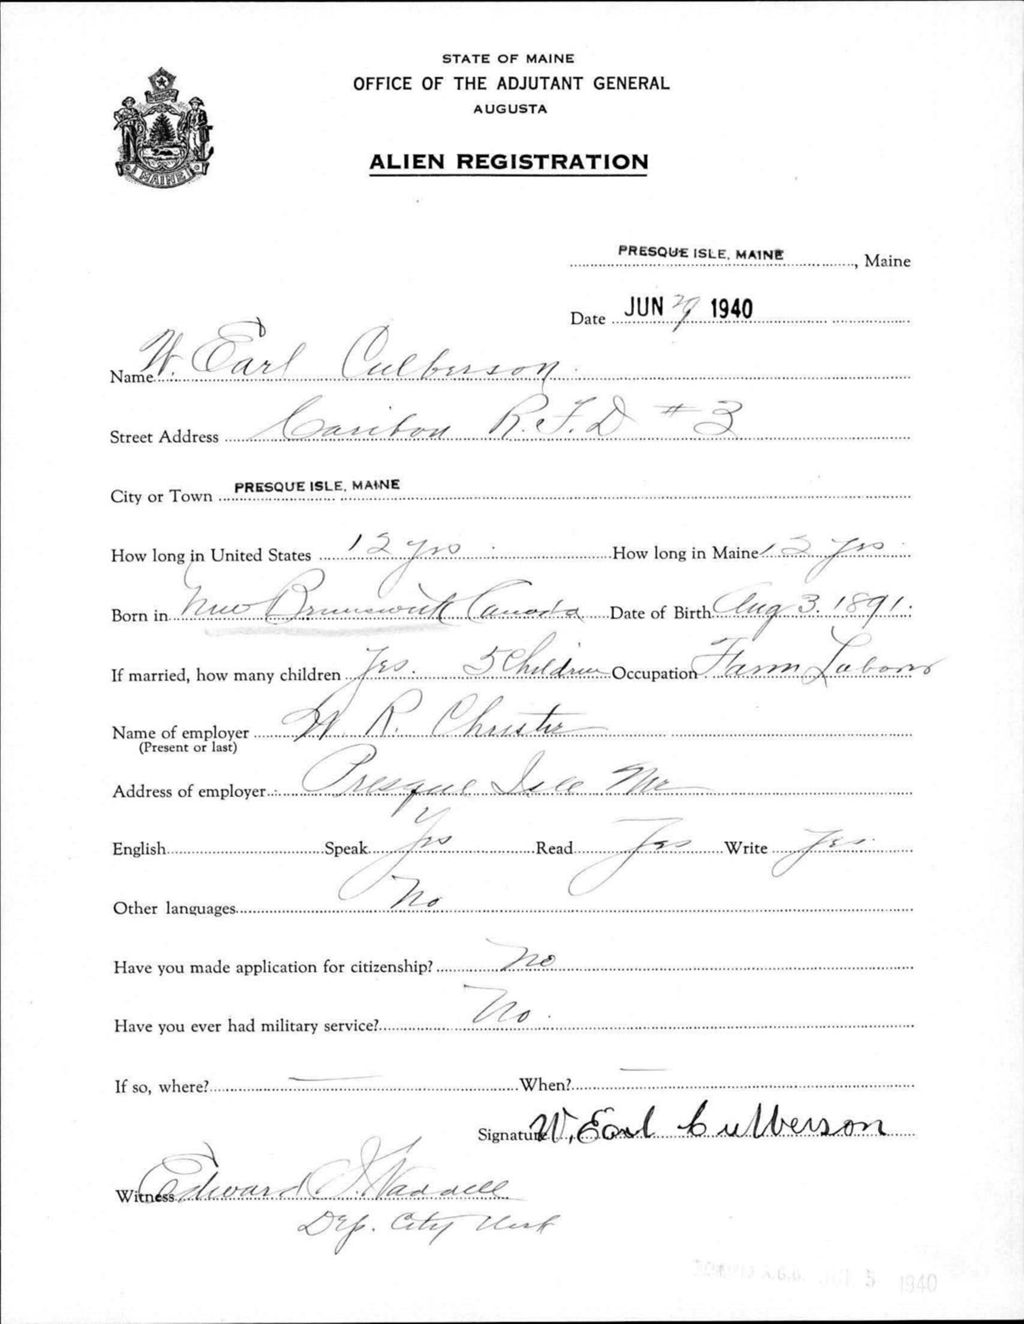 STATE OF MAINE
OFFICE OF THE ADJUTANT GENERAL
AUGUSTA
MAINE
ALIEN REGISTRATION
PRESQUE ISLE, MAINE, Maine
Date JUN 29 1940
Name W. Earl Culberson
Street Address Caribou R.F.D #3
City or Town PRESQUE ISLE, MAINE
How long in United States 12 yrs How long in Maine 12 yrs
Born in New Brunswick Canada Date of Birth Aug 3. 1891.
If married, how many children Yes. 5 Children Occupation Farm Laborer
Name of employer W R. Christie
(Present or last)
Address of employer Presque Isle Me
English Speak Yes Read Yes Write Yes.
Other languages No
Have you made application for citizenship? No
Have you ever had military service? No.
If so, where? — When? —
Signature W. Earl Culberson
Witness Edward J. Waddell
Dep. City Clerk
A.G.O. 5 1940